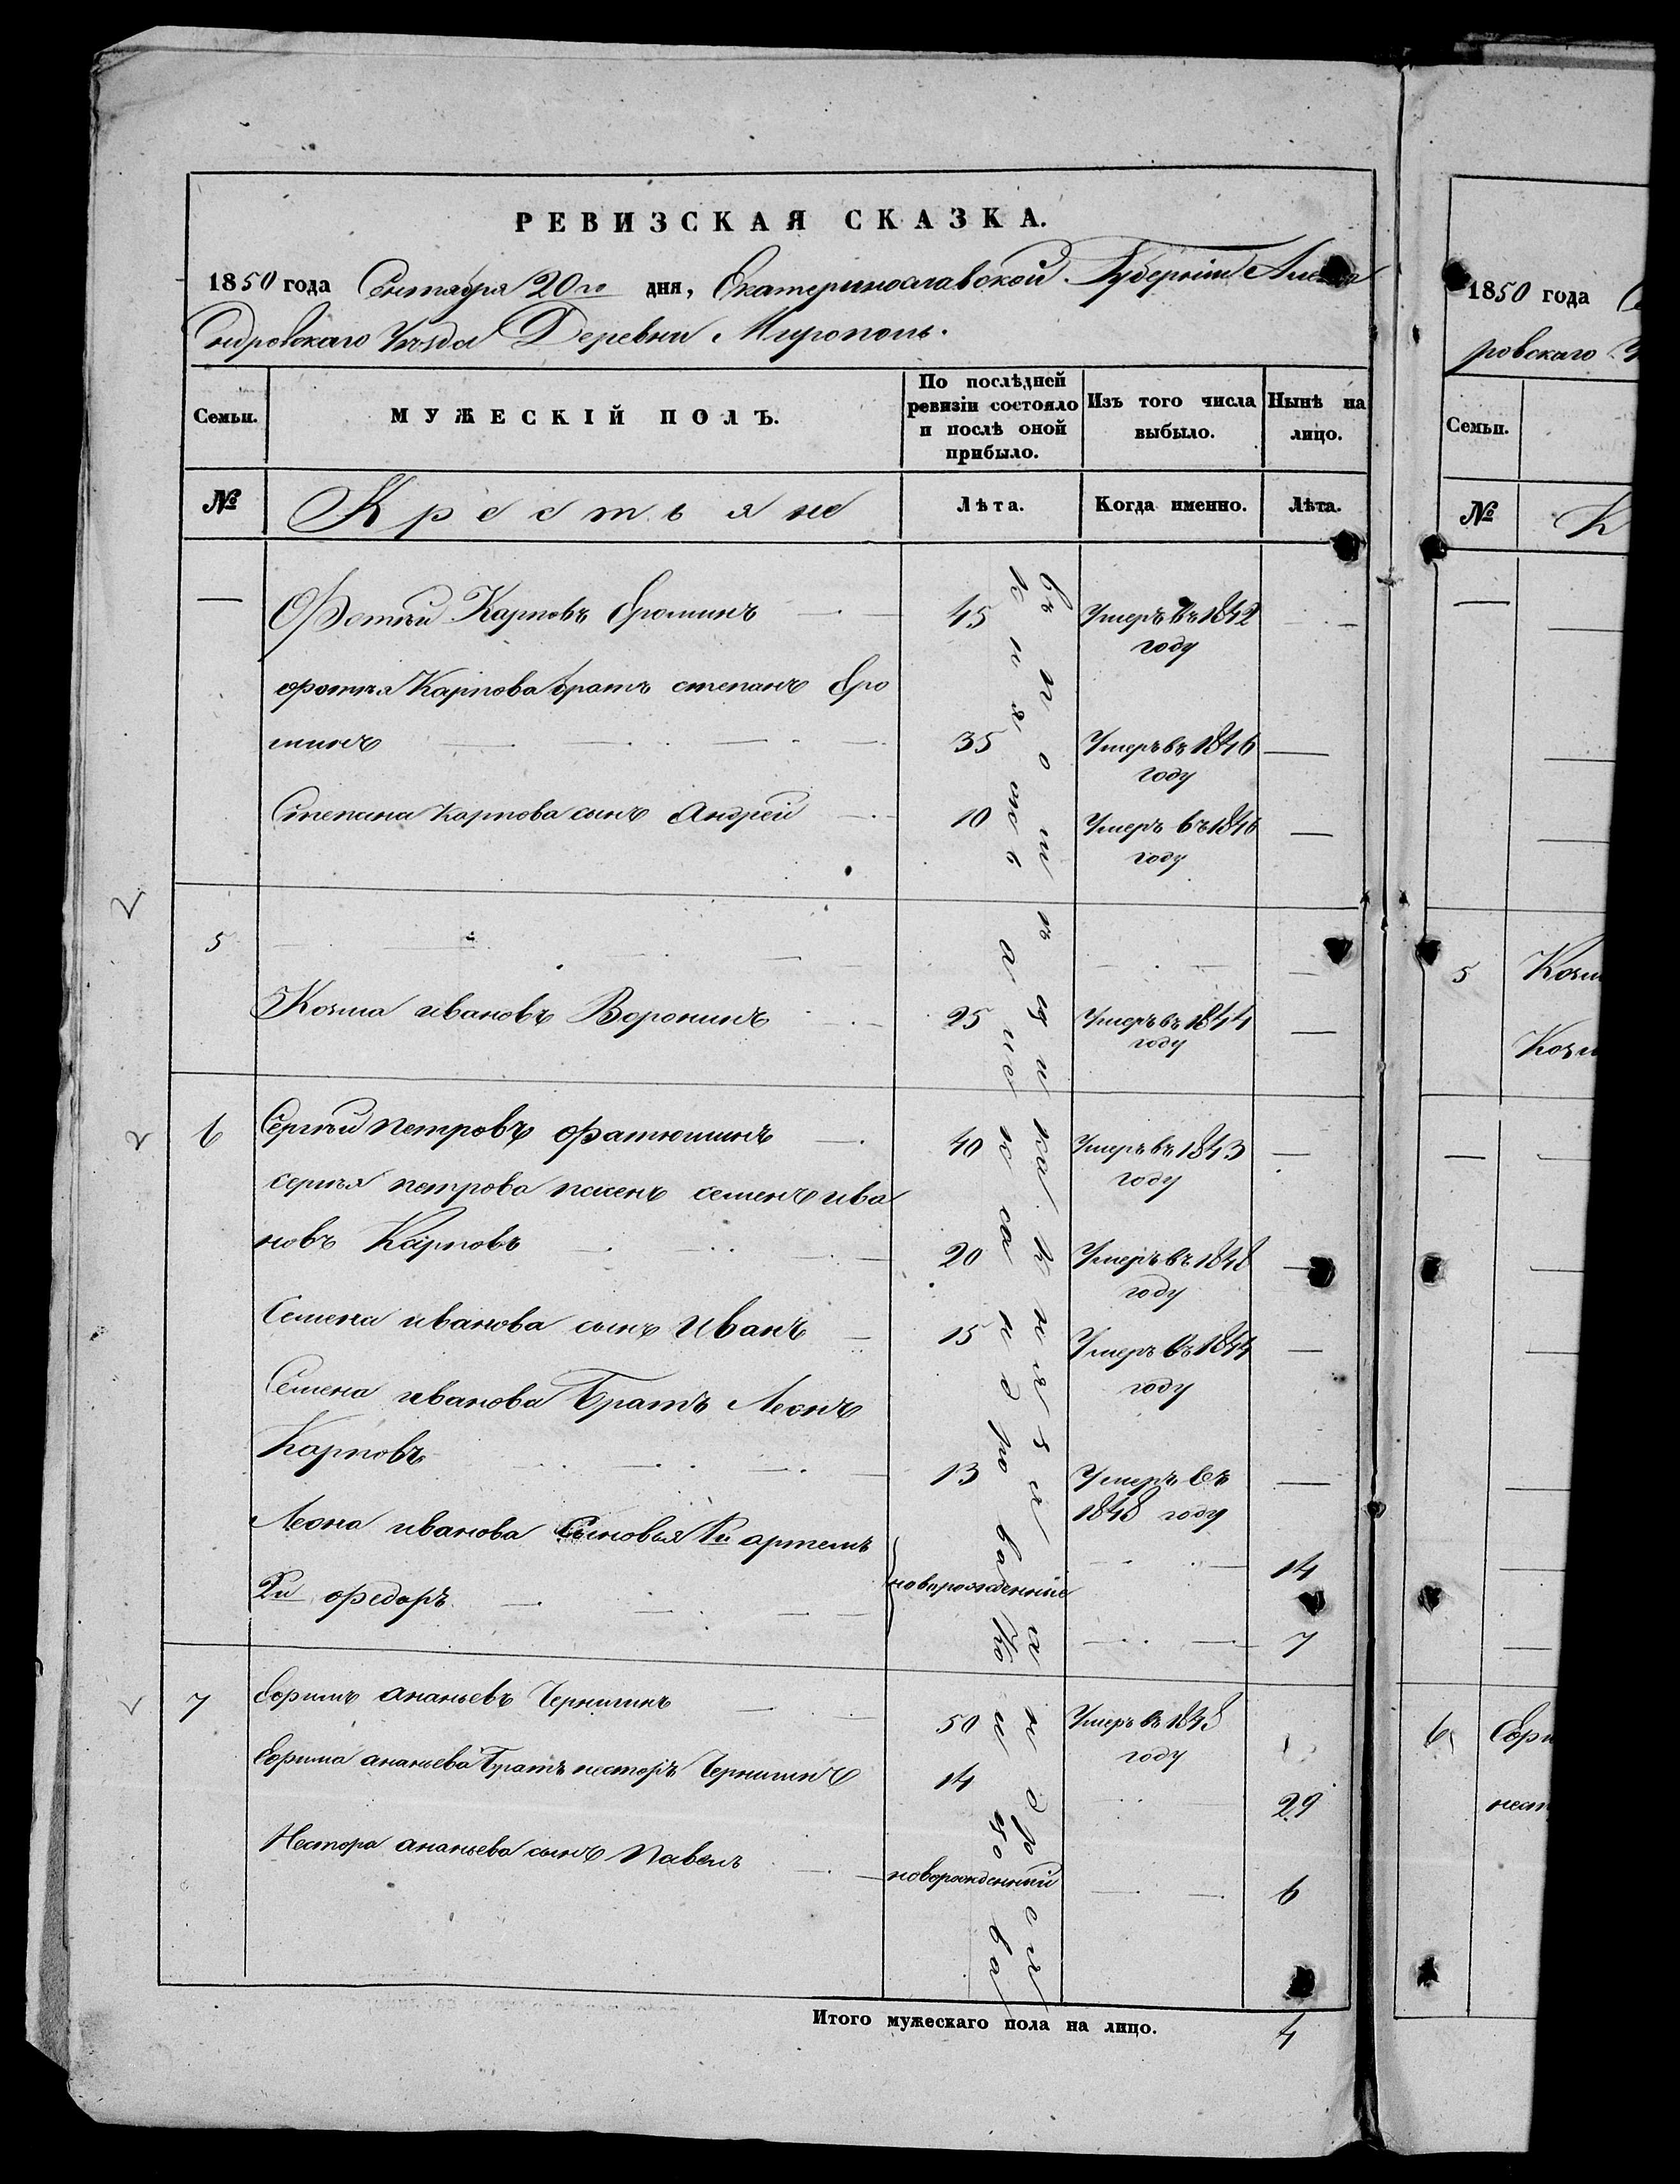 РЕВИЗСКАЯ СКАЗКА.
1850 года Сентября 20го дня, Екатеринославской Губерніи Алекса
ндровскаго Уѣзда Деревни Мирополь.
Семьи.
МУЖЕСКІЙ ПОЛЪ.
По послѣдней ревизіи состояло и послѣ оной прибыло.
Изъ того числа выбыло.
Нынѣ на лицо.
№
Крестьяне
Лѣта.
Когда именно.
Лѣта.
— Фотѣй Карповъ Ероминъ 45 Умеръ въ 1842 году —
фотѣя Карпова братъ степанъ Еро
минъ 35 Умеръ въ 1846 году —
Степана Карпова сынъ Андрей 10 Умеръ въ 1846 году —
5
Козма ивановъ Воронинъ 25 Умеръ въ 1844 году —
6 Сергѣй петровъ фатюшинъ 40 Умеръ въ 1843 году —
сергѣя петрова семенъ ива
новъ Карповъ 20 Умеръ въ 1848 году —
Семена иванова сынъ Иванъ 15 Умеръ въ 1844 году —
Семена иванова Братъ Леонъ
Карповъ 13 Умеръ въ 1848 году —
Леона иванова Сыновья 1й артемъ 14
2й федоръ новорожденніе 7
7 Ефимъ ананьевъ Чернишинъ 50 Умеръ въ 1848 году
Ефима ананьева Братъ несторъ Чернишинъ 14 29
Нестора ананьева сынъ павелъ новорожденний 6
Итого мужескаго пола на лицо. 4
1850 года
ровскаго
Семьи.
№ К
5 Козм
Козм
6 Ефи
нест